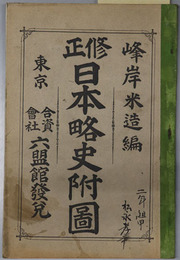 峰岸米造編
修正
日本略史附圖
東京
合資
會社
六盟館發兌